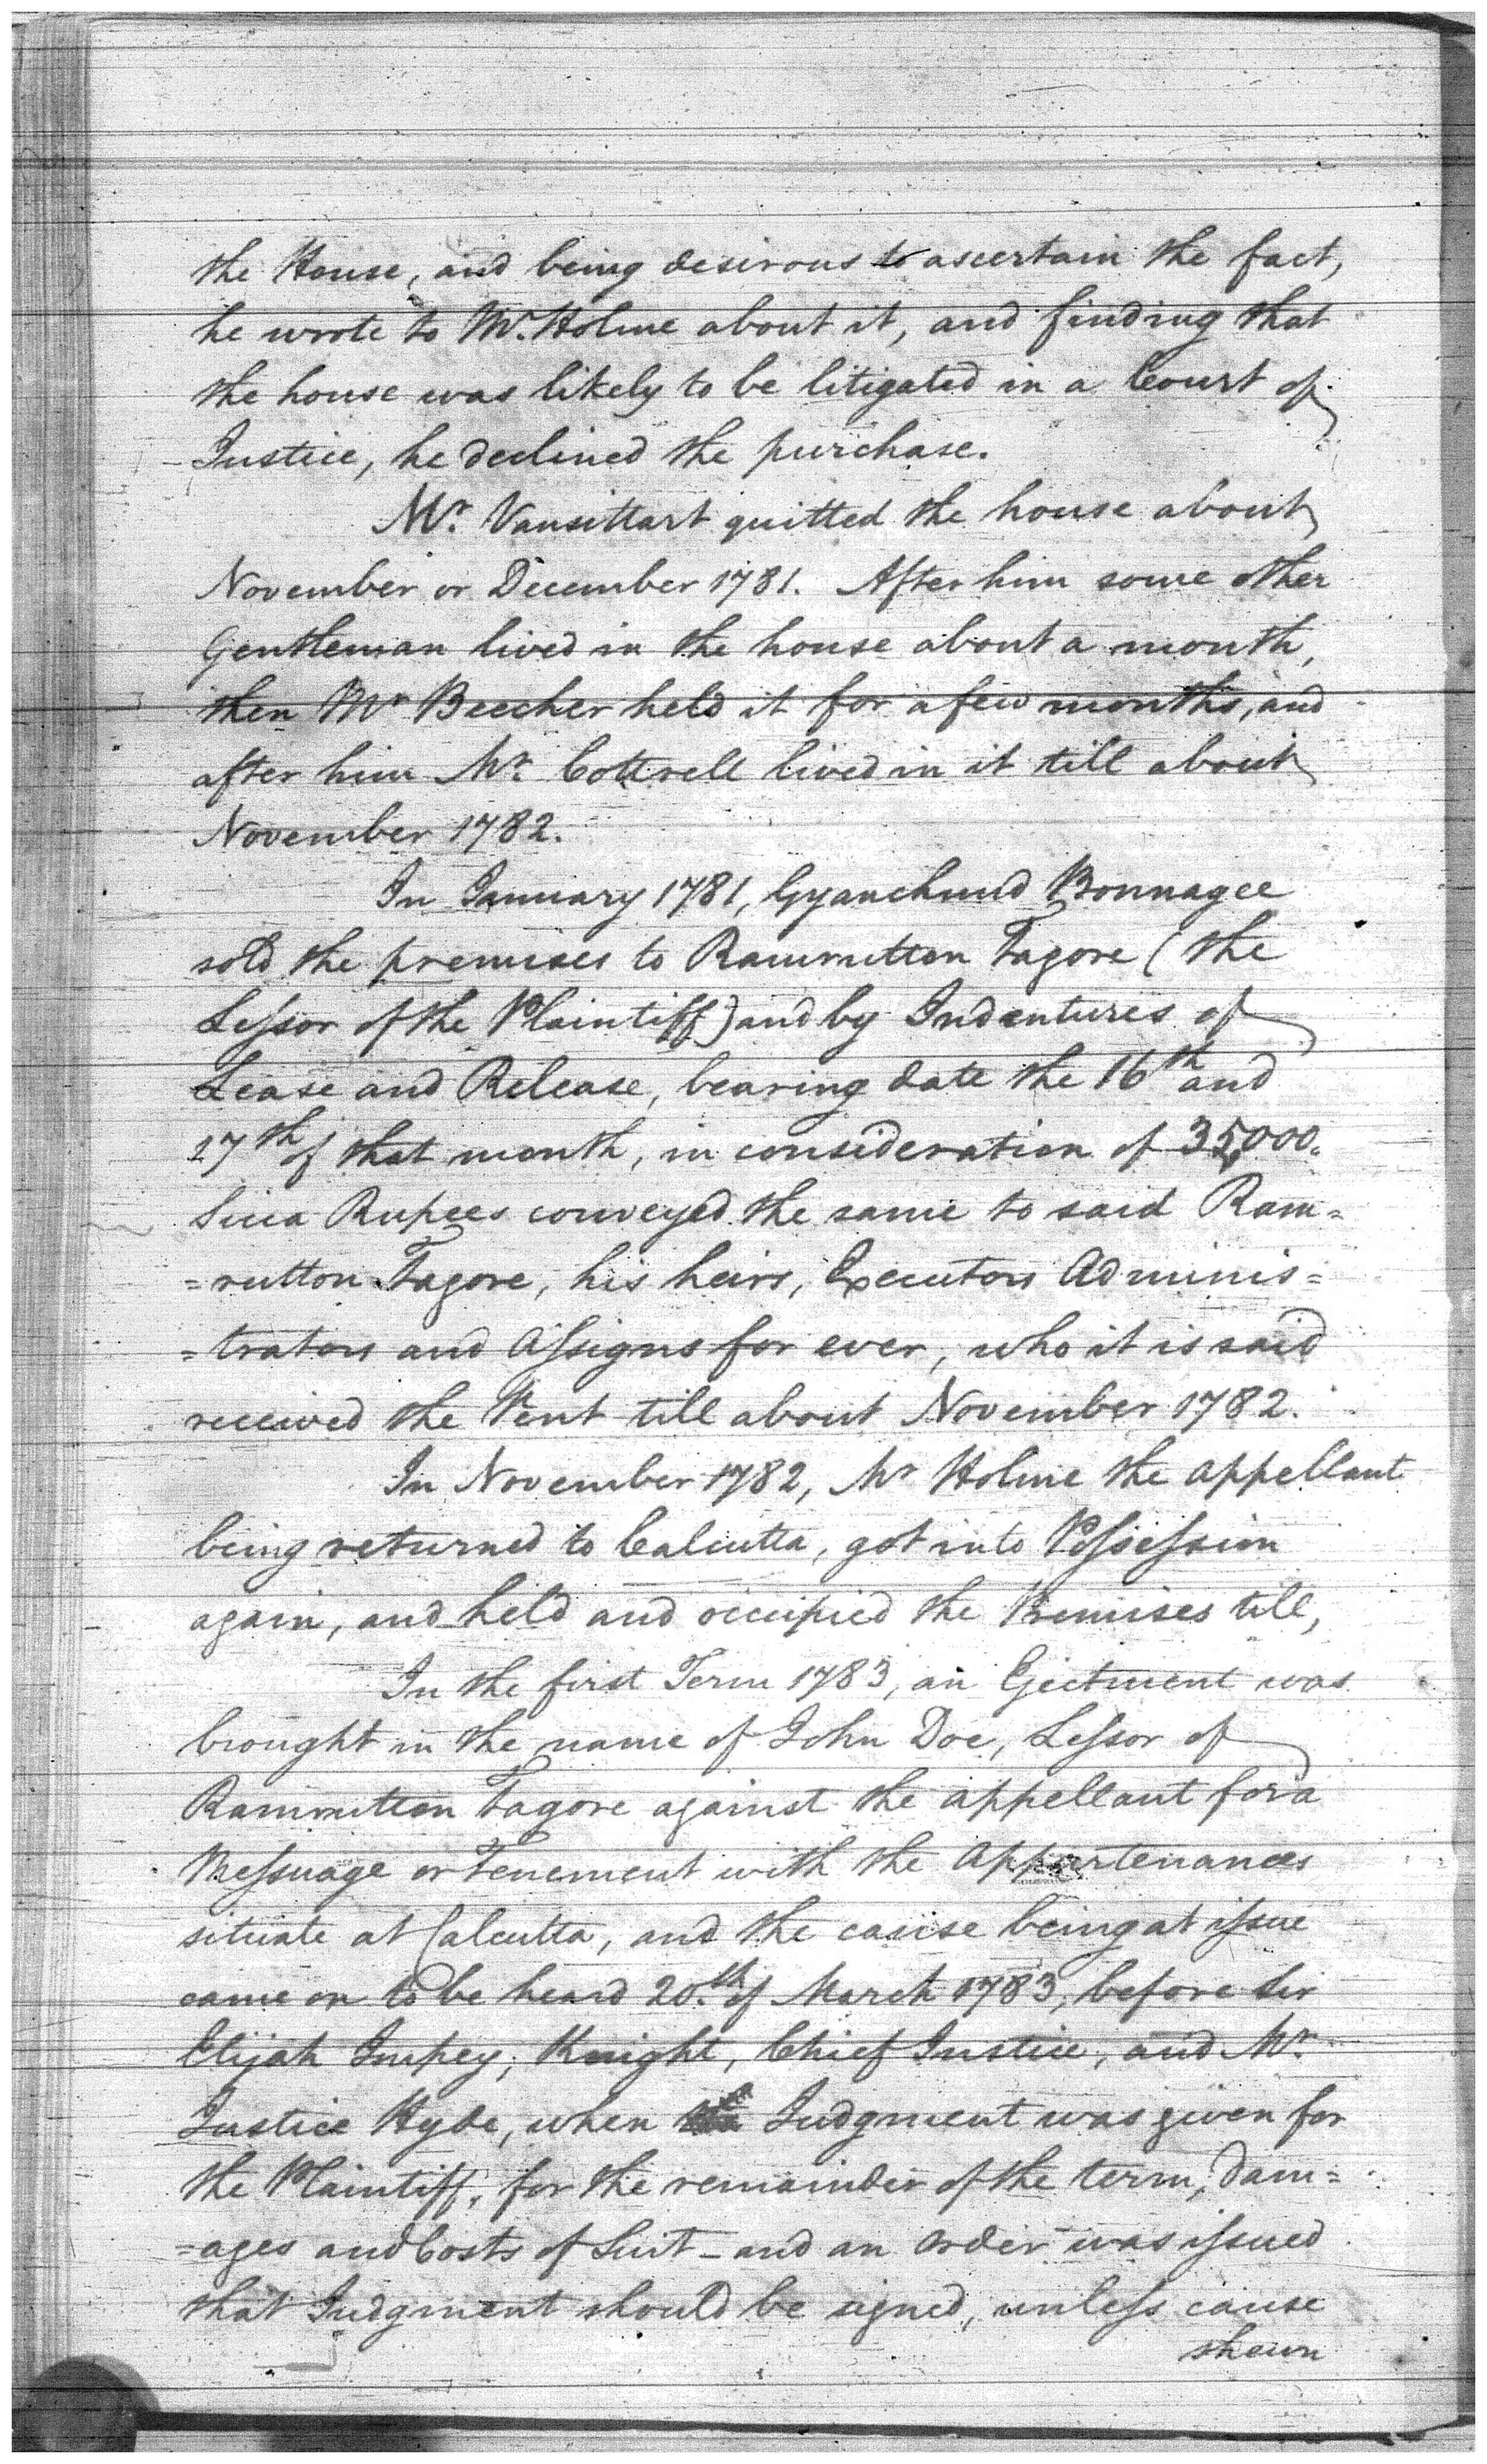 the House, and being desirous to ascertain the fact,
he wrote to Mr. Holme about it, and finding that
the house was likely to be litigated in a Court of
Justice, he declined the purchase.
Mr. Vansittart quitted the house about
November or December 1781. After him some other
Gentleman lived in the house about a month,
then Mr Beecher held it for a few months, and
after him Mr. Cottrell lived in it till about
November 1782.
In January 1781, Gyanchund Bonnagee
sold the premises to Ramrutton Tagore (the
Lessor of the Plaintiff) and by Indentures of
Lease and Release, bearing date the 16th and
17th of that month, in consideration of 35,000.
Sicca Rupees conveyed the same to said Ram=
=rutton Tagore, his heirs, Executors Adminis=
=trators and Assigns for ever, who it is said
received the Rent till about November 1782.
In November 1782, Mr Holme the appellant
being returned to Calcutta, got into Possession
again, and held and occupied the Premises till,
In the first Term 1783, an Ejectment was
brought in the name of John Doe, Lessor of
Ramrutton Tagore against the appellant for a
Messuage or Tenement with the Appurtenances
situate at Calcutta, and the cause being at issue
came on to be heard 20th of March 1783, before Sir
Elijah Impey, Knight, Chief Justice, and Mr.
Justice Hyde, when Judgment was given for
the Plaintiff, for the remainder of the term, Dam=
=ages and Costs of Suit - and an order was issued
that Judgment should be signed, unless cause
shewn